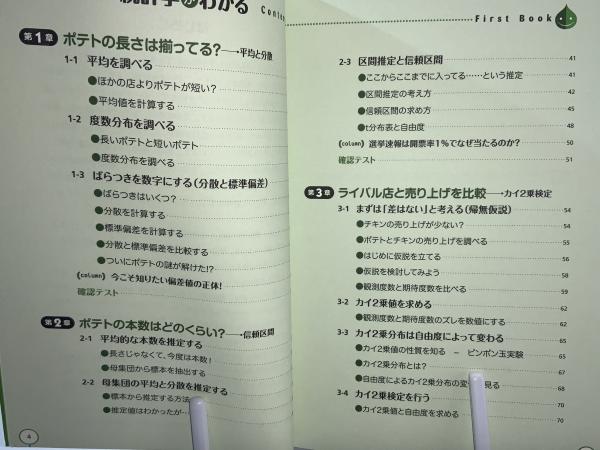 がわかる Conten
第1章 ポテトの長さは揃ってる?→平均と分散
1-1 平均を調べる
●ほかの店よりポテトが短い?
●平均値を計算する
1-2 度数分布を調べる
●長いポテトと短いポテト
●度数分布を調べる
1-3 ばらつきを数字にする(分散と標準偏差)
●ばらつきはいくつ?
●分散を計算する
●標準偏差を計算する
●分散と標準偏差を比較する
●ついにポテトの謎が解けた!?
《column》今こそ知りたい偏差値の正体!
確認テスト
第2章 ポテトの本数はどのくらい?→信頼区間
2-1 平均的な本数を推定する
●長さじゃなくて、今度は本数!
●母集団から標本を抽出する
2-2 母集団の平均と分散を推定する
●標本から推定する方法
●推定値はわかったが
4
First Book
2-3 区間推定と信頼区間 41
●ここからここまでに入ってる……という推定 41
●区間推定の考え方 42
●信頼区間の求め方 45
●t分布表と自由度 48
《column》選挙速報は開票率1%でなぜ当たるのか? 50
確認テスト 51
第3章 ライバル店と売り上げを比較→カイ2乗検定
3-1 まずは「差はない」と考える(帰無仮説) 54
●チキンの売り上げが少ない? 54
●ポテトとチキンの売り上げを調べる 55
●はじめに仮説を立てる 56
●仮説を検討してみよう 58
●観測度数と期待度数を比べる 59
3-2 カイ2乗値を求める 62
●観測度数と期待度数のズレを数値にする 62
3-3 カイ2乗分布は自由度によって変わる 65
●カイ2乗値の性質を知る - ピンポン玉実験 65
●カイ2乗分布とは? 67
●自由度によるカイ2乗分布の変 見る 68
3-4 カイ2乗検定を行う 70
●カイ2乗値と自由度を求める 70